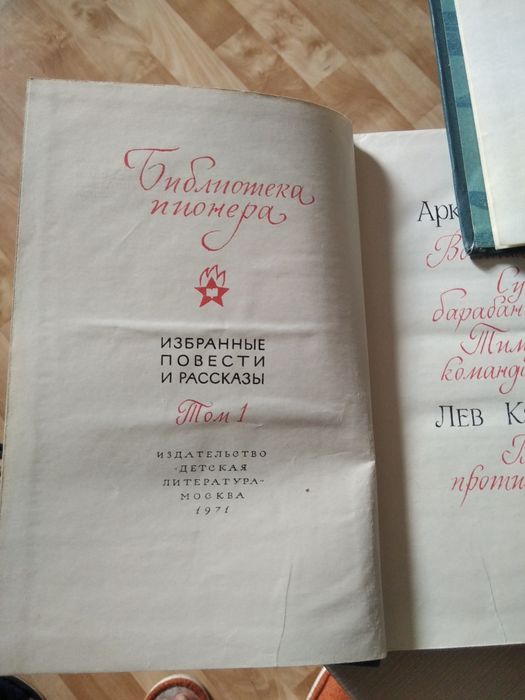 Библиотека
пионера
ИЗБРАННЫЕ
ПОВЕСТИ
И РАССКАЗЫ
Том 1
ИЗДАТЕЛЬСТВО
«ДЕТСКАЯ
ЛИТЕРАТУРА»
МОСКВА
1971
Арк
Су
барабан
Тим
команд
ЛЕВ К
проти